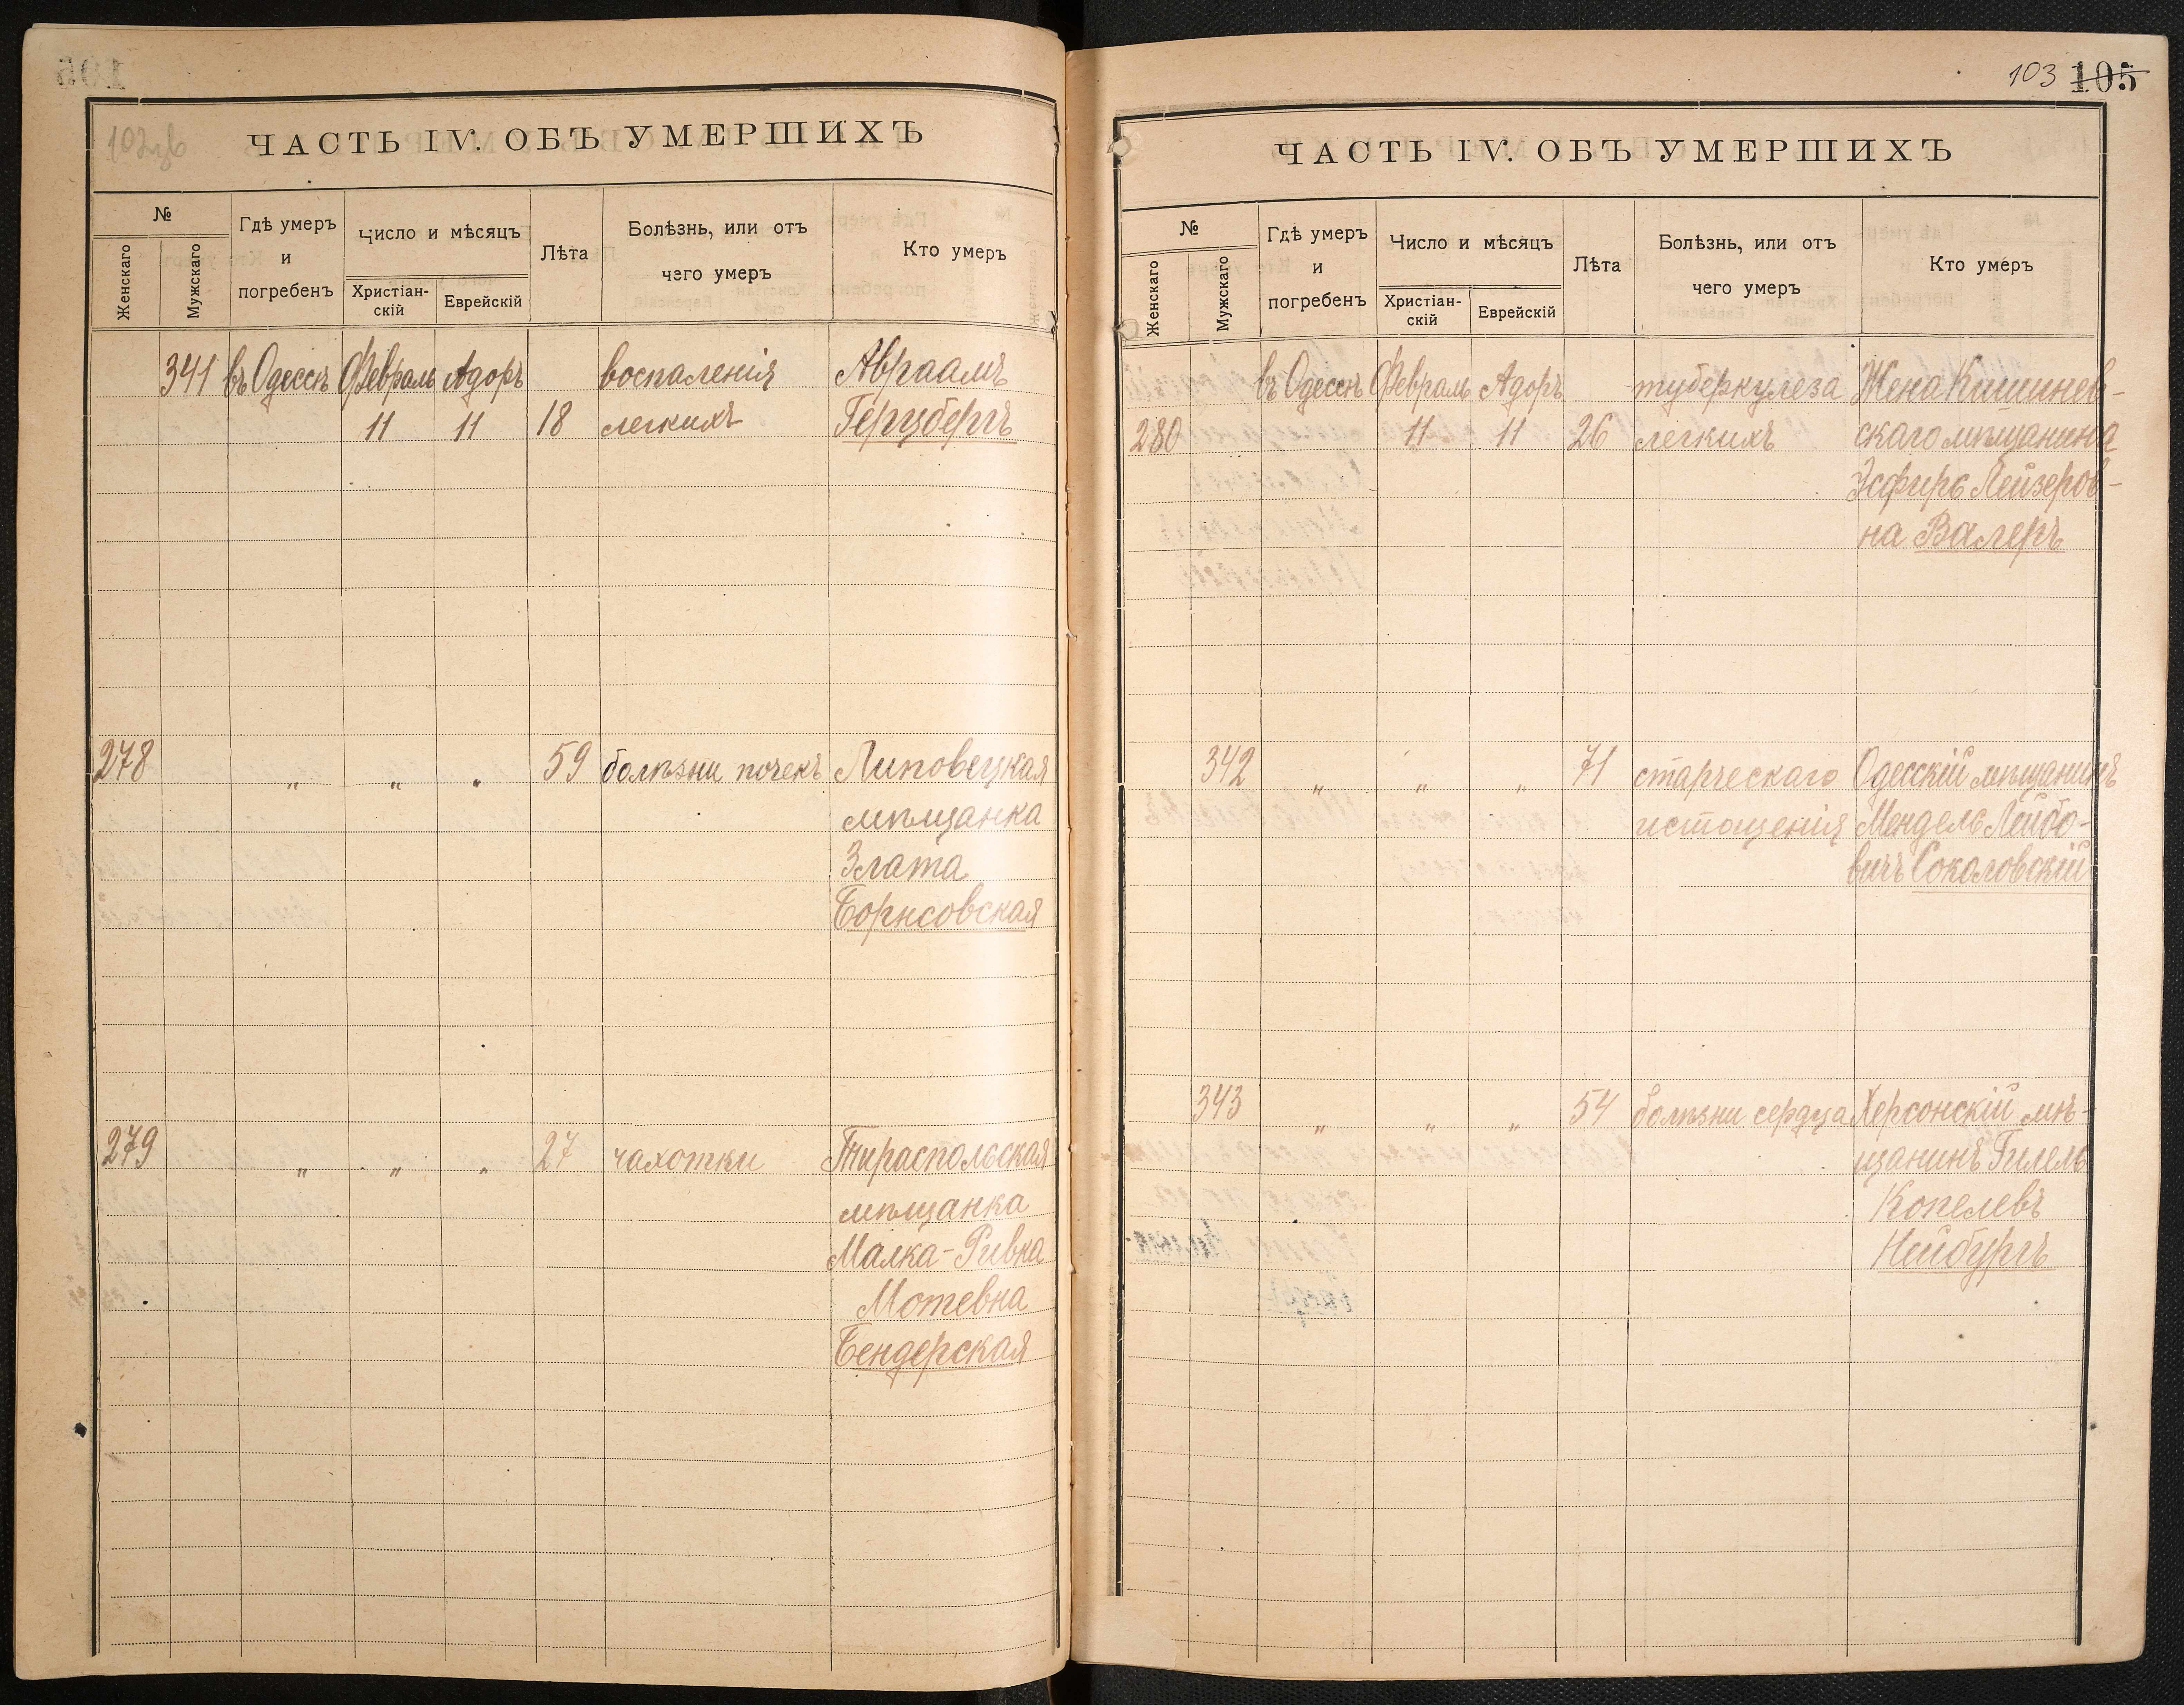 ЧАСТЬ IV. ОБЪ УМЕРШИХЪ
№
Женскаго
Мужскаго
Гдѣ умеръ
и
погребенъ
Число и мѣсяцъ
Христіан-
скій
Еврейскій
Лѣта
Болѣзнь, или отъ
чего умеръ
Кто умеръ
341 въ Одессѣ Февраль Адоръ воспаленія Авраамъ
11 11 18 легкихъ Герцбергъ
278 „ „ „ 59 болѣзни почекъ Липовецкая
мѣщанка
Злата
Борисовская
279 „ „ „ 27 чахотки Тираспольская
мѣщанка
Малка-Ривка
Мотевна
Бендерская
103 105
ЧАСТЬ IV. ОБЪ УМЕРШИХЪ
№
Женскаго
Мужскаго
Гдѣ умеръ
и
погребенъ
Число и мѣсяцъ
Христіан-
скій
Еврейскій
Лѣта
Болѣзнь, или отъ
чего умеръ
Кто умеръ
въ Одессѣ Февраль Адоръ туберкулеза Жена Кишинев-
280 11 11 26 легкихъ скаго мѣщанина
Эсфирь Лейзеров-
на Валеръ
342 „ „ „ 71 старческаго Одесскій мѣщанинъ
истощенія Мендель Лейбо-
вичъ Соколовскій
343 „ „ „ 54 болѣзни сердца Херсонскій мѣ-
щанинъ Гилель
Копелевъ
Нейбургъ